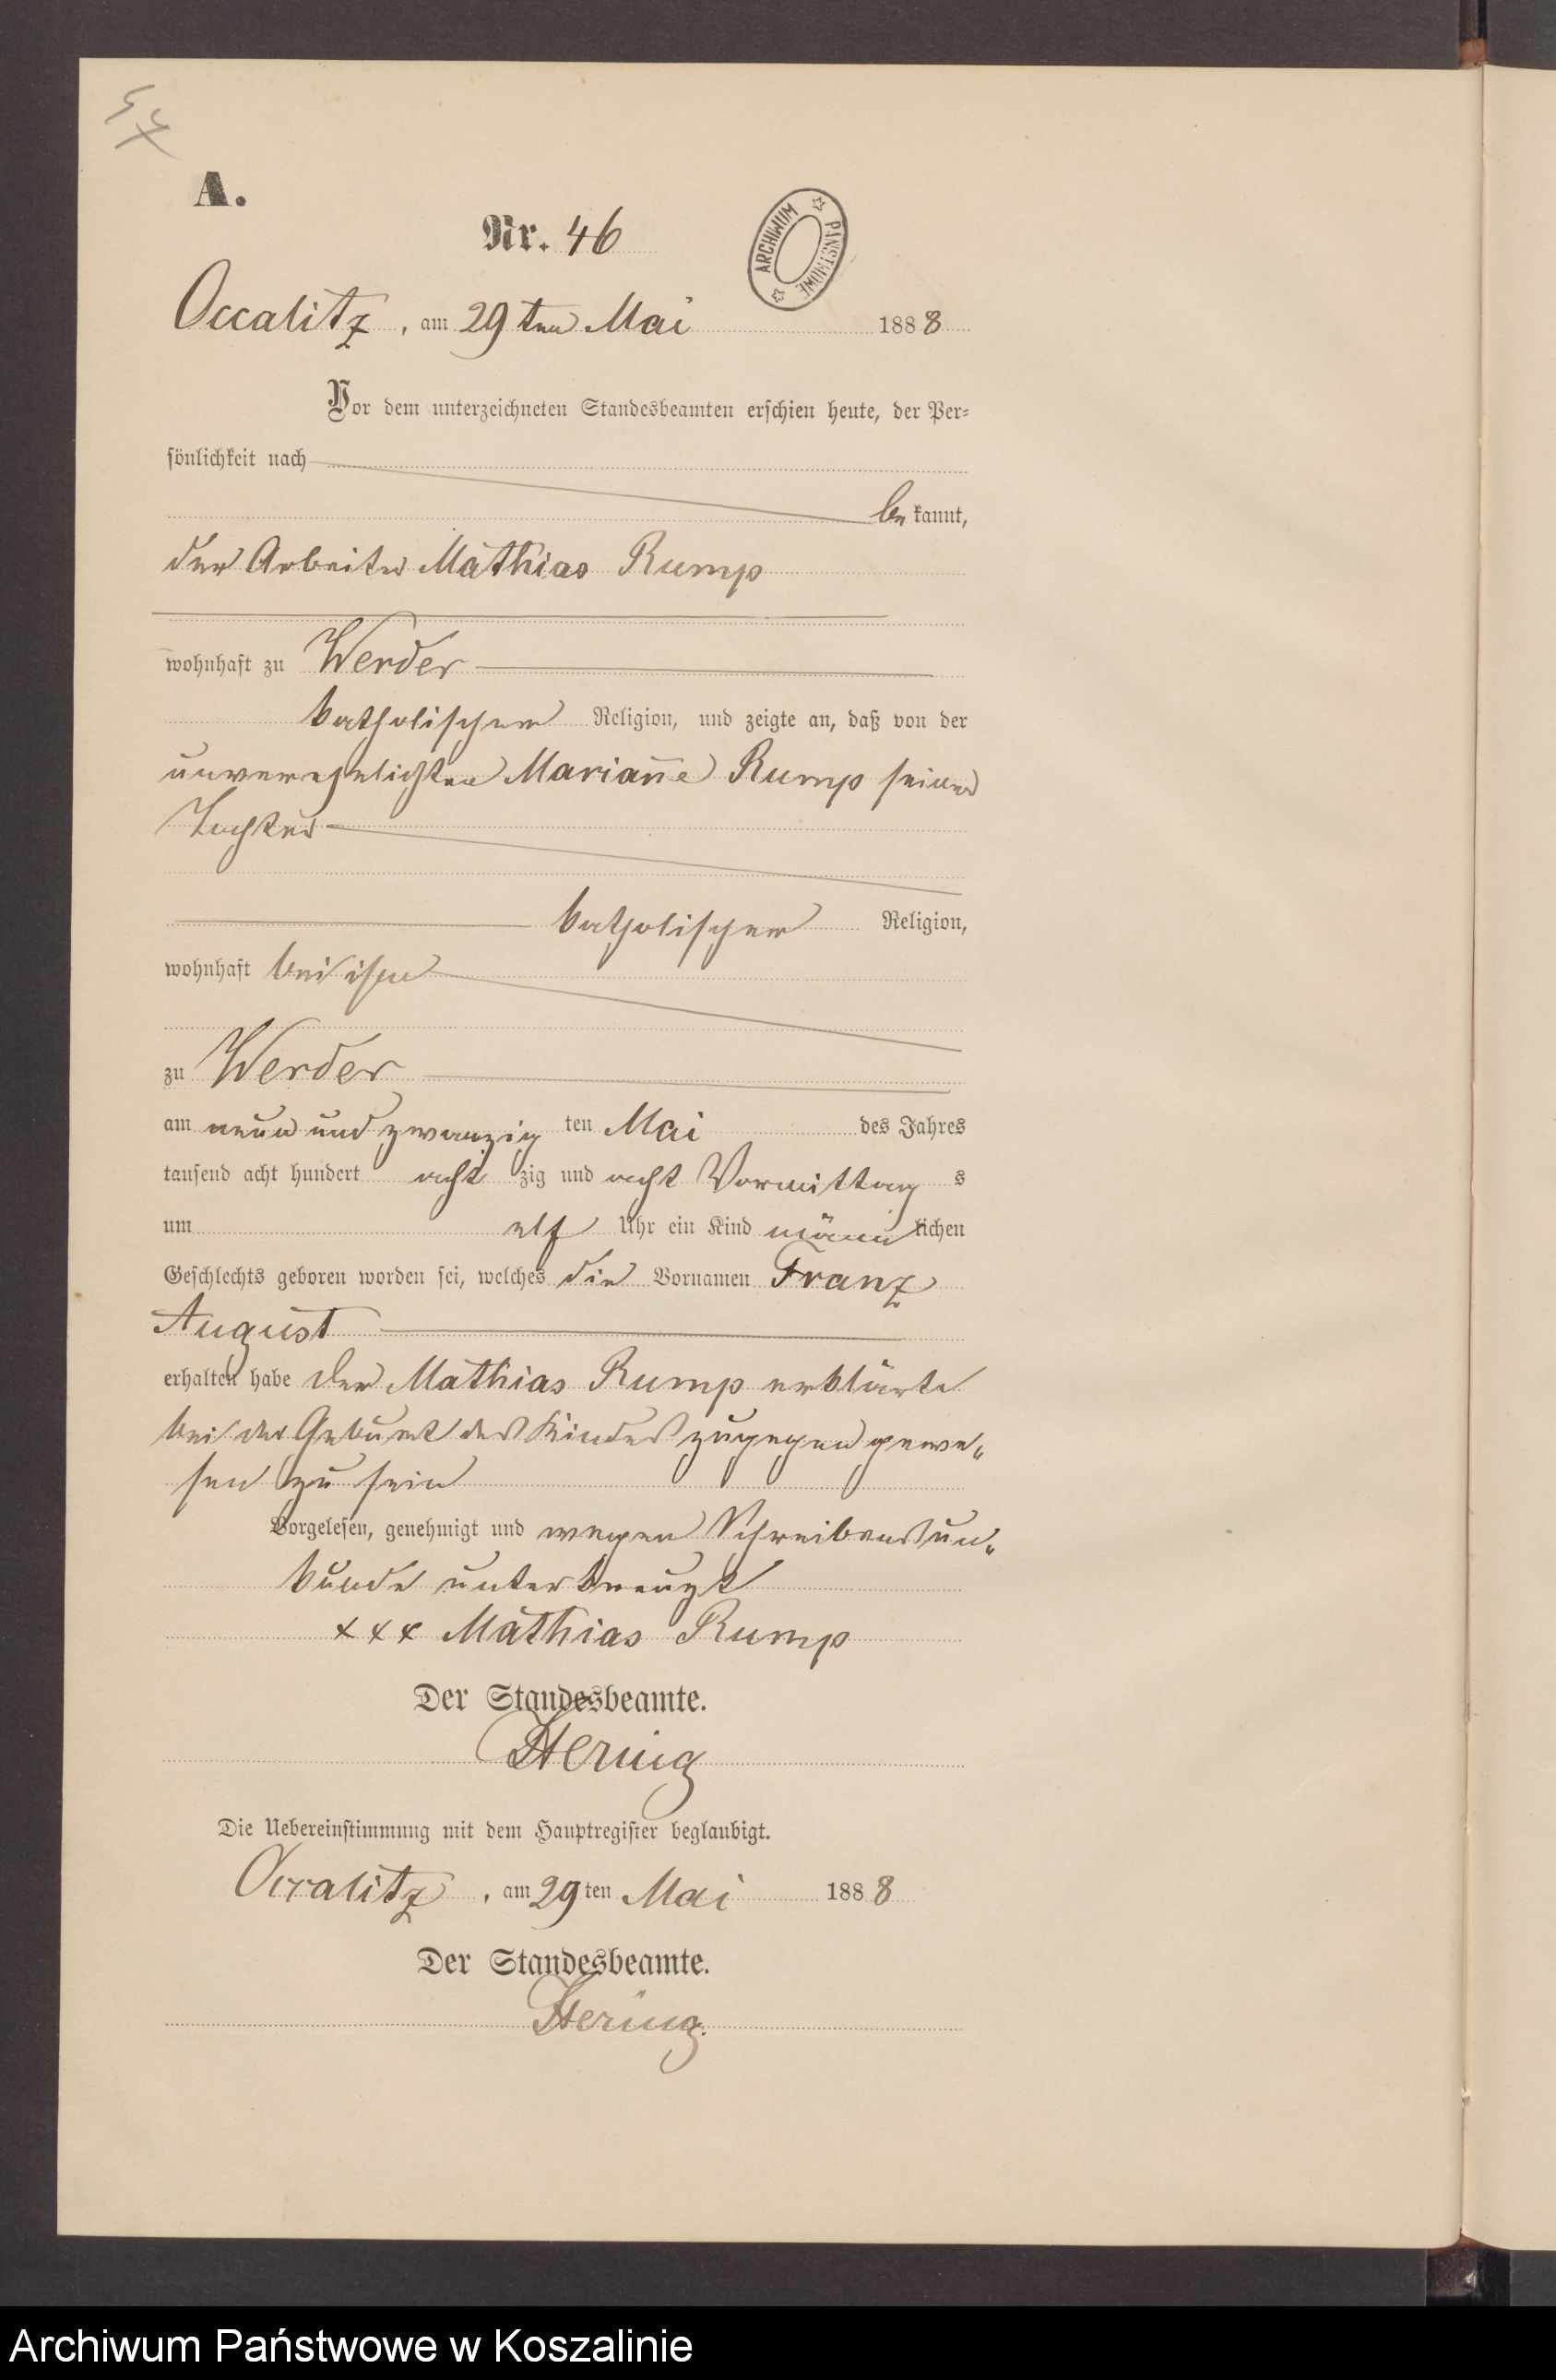 54
A.
Nr. 46
ARCHIWUM PAŃSTWOWE
Occalitz, am 29ten Mai 1888
Vor dem unterzeichneten Standesbeamten erschien heute, der Per-
sönlichkeit nach
bekannt,
der Arbeiter Mathias Rump
wohnhaft zu Werder
katholischer Religion, und zeigte an, daß von der
unverehelichten Marianne Rump seiner
Tochter
katholischer Religion,
wohnhaft bei ihm
zu Werder
am neun und zwanzig ten Mai des Jahres
tausend acht hundert acht zig und acht Vormittag s
um elf Uhr ein Kind männlichen
Geschlechts geboren worden sei, welches die Vornamen Franz
August
erhalten habe der Mathias Rump erklärte
bei der Geburt des Kindes zugegen gewe„
sen zu sein
Vorgelesen, genehmigt und wegen Schreibensun„
kunde unterkreuzt
xxx Mathias Rump
Der Standesbeamte.
Hering
Die Uebereinstimmung mit dem Hauptregister beglaubigt.
Occalitz, am 29ten Mai 1888
Der Standesbeamte.
Hering.
Archiwum Państwowe w Koszalinie